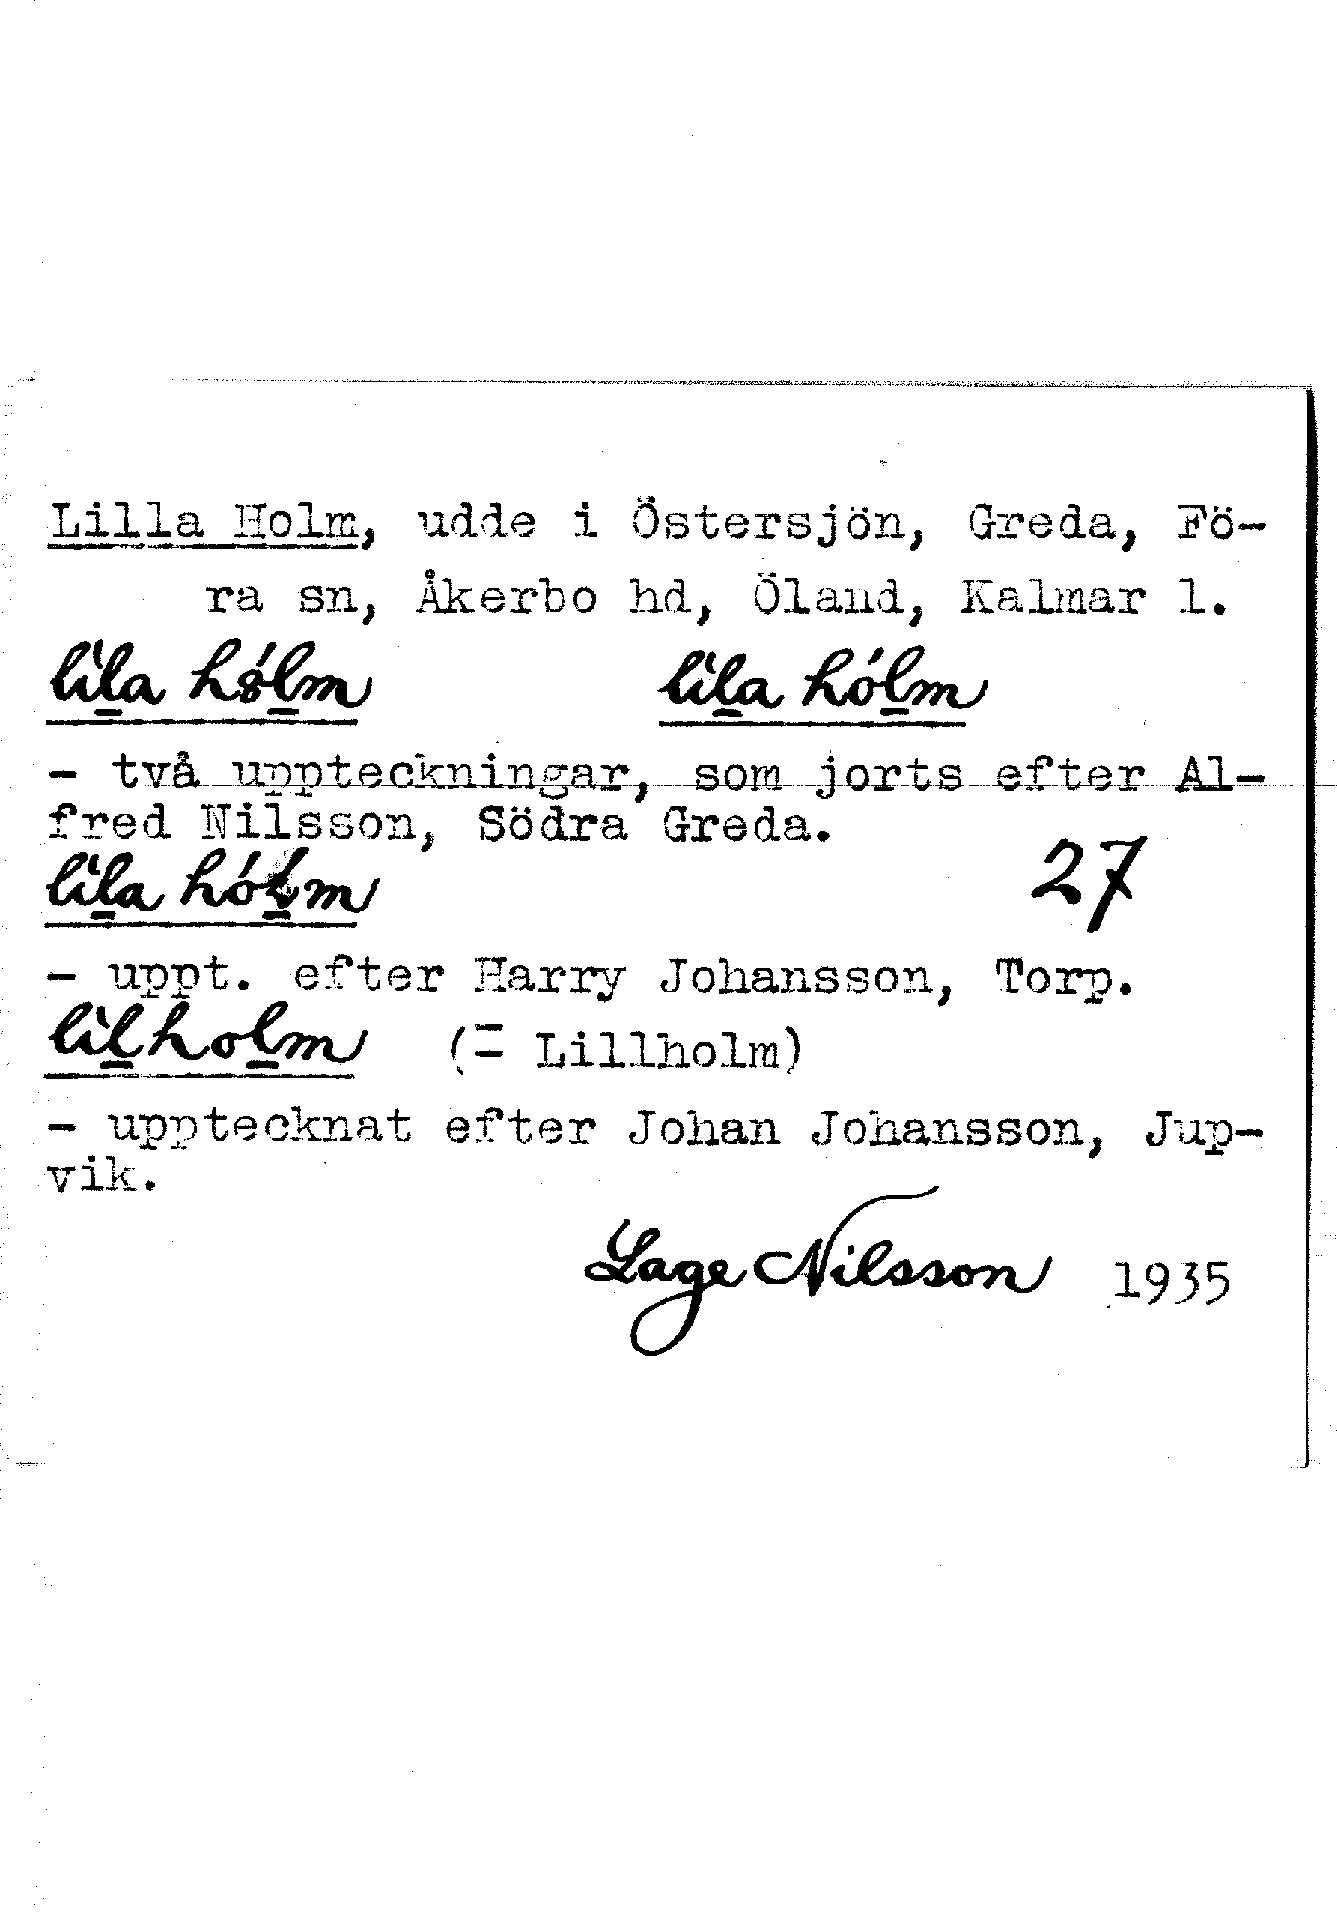 Lilla Holm, udde i Östersjön, Greda, Fö-
ra sn, Åkerbo hd, Öland, Kalmar l.
lìla hólm lìla hólm
- två uppteckningar, som jorts efter Al-
fred Nilsson, Södra Greda.
lìla hólm 27
- uppt. efter Harry Johansson, Torp.
lìlholm (= Lillholm)
- upptecknat efter Johan Johansson, Jup-
vik.
Lage Nilsson 1935